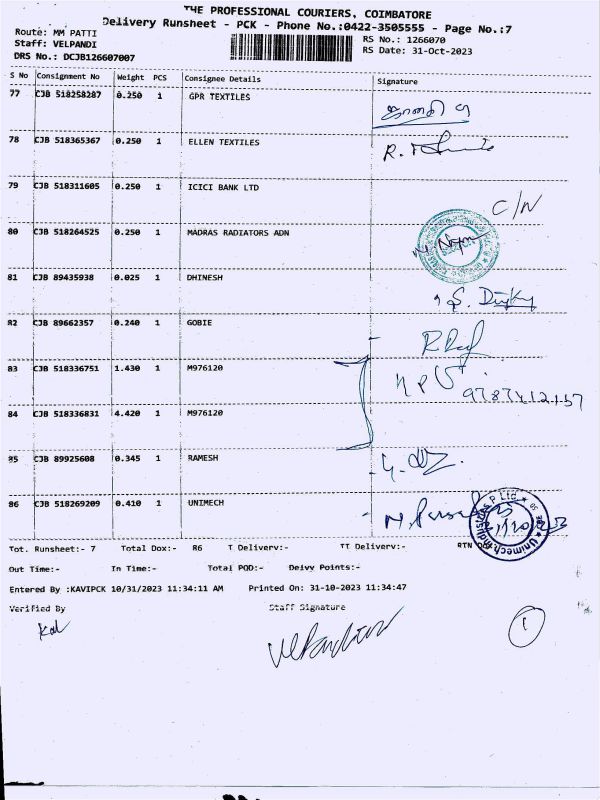 THE PROFESSIONAL COURIERS, COIMBATORE
Delivery Runsheet - PCK - Phone No.:0422-3505555 - Page No.:7
Route: MM PATTI
Staff: VELPANDI
DRS No.: DCJB126607007
RS No.: 1266070
RS Date: 31-Oct-2023
S No Consignment No Weight PCS Consignee Details Signature
77 CJB 518258287 0.250 1 GPR TEXTILES
78 CJB 518365367 0.250 1 ELLEN TEXTILES
79 CJB 518311605 0.250 1 ICICI BANK LTD
C/N
80 CJB 518264525 0.250 1 MADRAS RADIATORS ADN
81 CJB 89435938 0.025 1 DHINESH
82 CJB 89662357 0.240 1 GOBIE
83 CJB 518336751 1.430 1 M976120
84 CJB 518336831 4.420 1 M976120
85 CJB 89925608 0.345 1 RAMESH
86 CJB 518269209 0.410 1 UNIMECH
Tot. Runsheet:- 7 Total Dox:- R6 T Delivery:- TT Delivery:- RTN
Out Time:- In Time:- Total POD:- Deivy Points:-
Entered By :KAVIPCK 10/31/2023 11:34:11 AM Printed On: 31-10-2023 11:34:47
Verified By Staff Signature
1